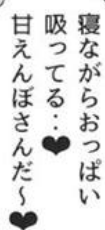 寝ながらおっぱい
吸ってる‥♥
甘えんぼさんだ～♥